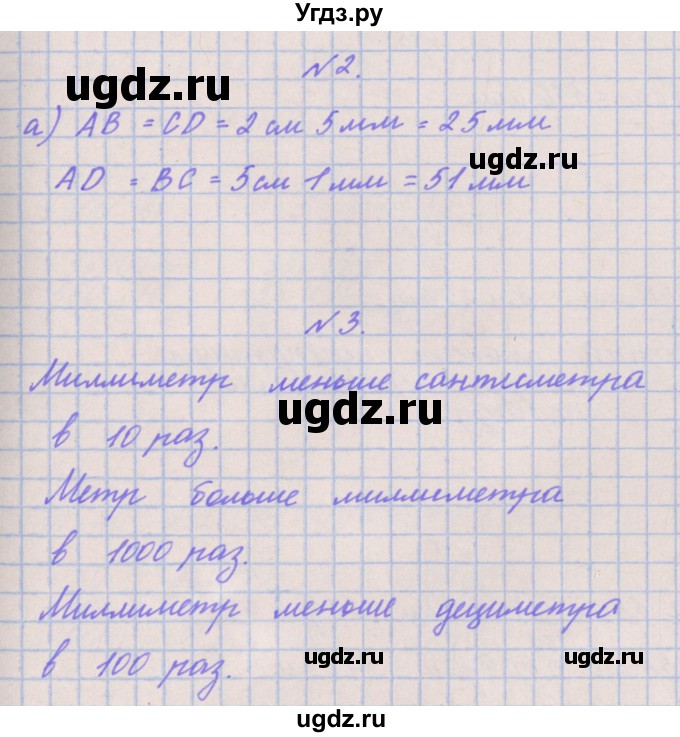 Угдз.ру
ugdz.ru
№2.
а) AB = CD = 2 см 5 мм = 25 мм
ugdz.ru
AD = BC = 5 см 1 мм = 51 мм
№3.
Миллиметр меньше сантиметра
ugdz.ru
в 10 раз.
Метр больше миллиметра
в 1000 раз.
Миллиметр меньше дециметра
в 100 раз.
ugdz.ru ugdz.ru
ugdz.ru